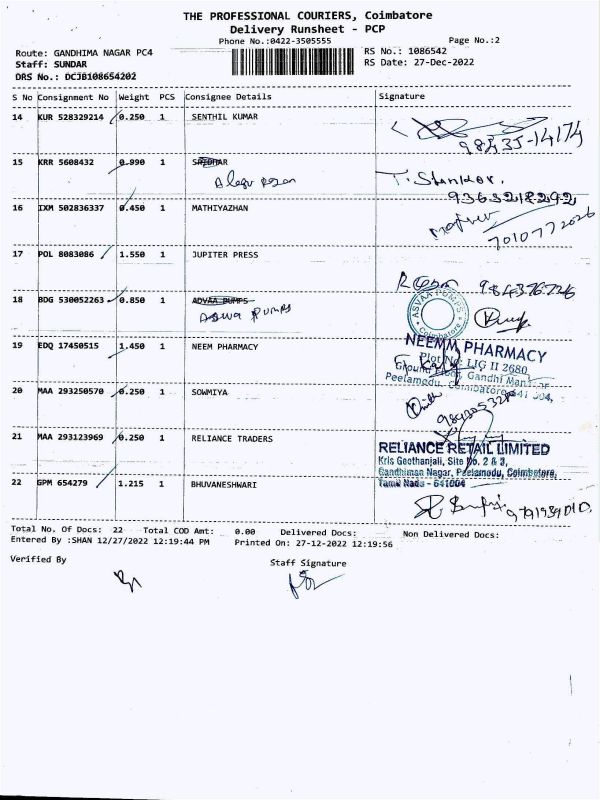 THE PROFESSIONAL COURIERS, Coimbatore
Delivery Runsheet - PCP
Phone No.:0422-3505555
Page No.:2
Route: GANDHIMA NAGAR PC4
RS No.: 1086542
Staff: SUNDAR
RS Date: 27-Dec-2022
DRS No.: DCJB108654202
S No Consignment No Weight PCS Consignee Details Signature
14 KUR 528329214 0.250 1 SENTHIL KUMAR
98435-14174
15 KRR 5608432 0.990 1
T. Shankar.
9363218292
16 IXM 502836337 0.450 1 MATHIYAZHAN
7010772026
17 POL 8083086 1.550 1 JUPITER PRESS
984376726
18 BDG 530052263 0.850 1 ADVAA PUMPS
Asvva Pumps
ASVAA PUMPS
Coimbatore
19 EDQ 17450515 1.450 1 NEEM PHARMACY
NEEMM PHARMACY
Plot No: LIG II 2680
Ground Floor, Gandhi
Peelamedu, Coimbatore-641 004,
20 MAA 293250570 0.250 1 SOWMIYA
21 MAA 293123969 0.250 1 RELIANCE TRADERS
RELIANCE RETAIL LIMITED
Kris Geethanjali, Site No. 2 & 3,
Gandhiman Nagar, Peelamedu, Coimbatore,
Tamil Nadu - 641004
22 GPM 654279 1.215 1 BHUVANESHWARI
Total No. Of Docs: 22 Total COD Amt: 0.00 Delivered Docs: Non Delivered Docs:
Entered By :SHAN 12/27/2022 12:19:44 PM Printed On: 27-12-2022 12:19:56
Verified By
Staff Signature